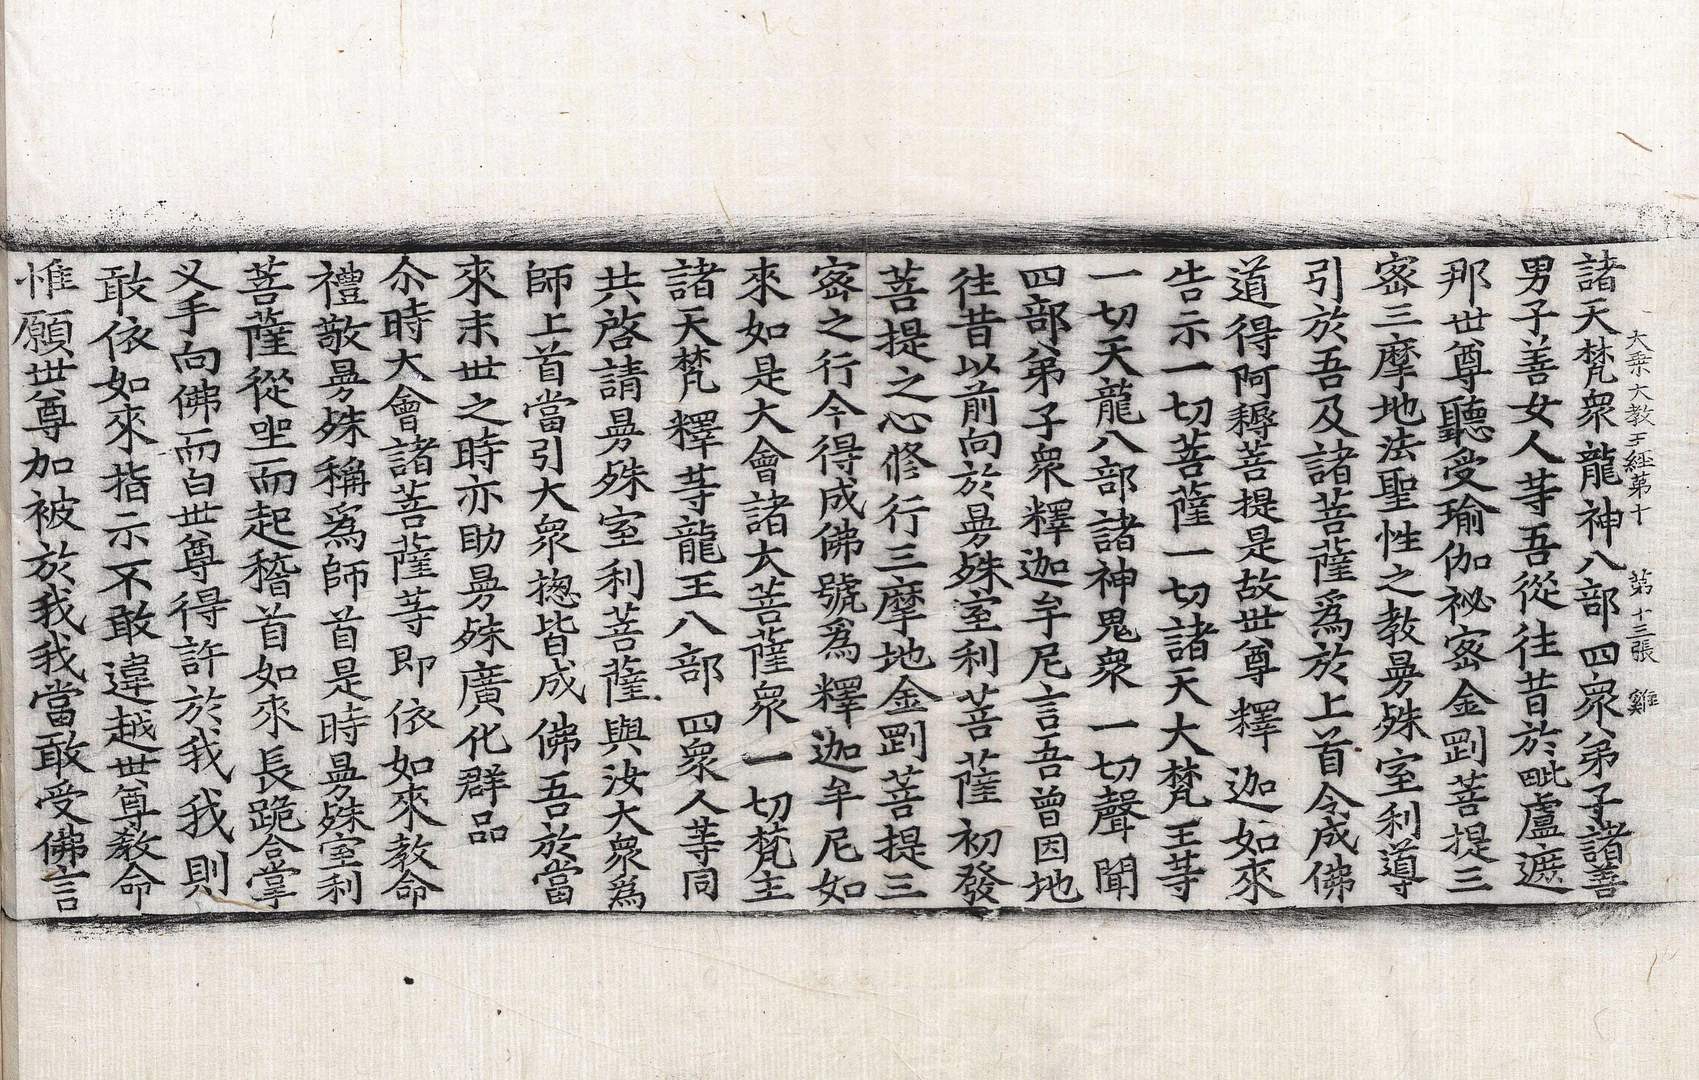 大乘大教王經第十　第十三張　雞
諸天梵衆龍神八部四衆弟子諸善
男子善女人等吾從往昔於毗盧遮
那世尊聽受瑜伽祕密金剛菩提三
密三摩地法聖性之教曼殊室利導
引於吾及諸菩薩爲於上首令成佛
道得阿耨菩提是故世尊釋迦如來
告示一切菩薩一切諸天大梵王等
一切天龍八部諸神鬼衆一切聲聞
四部弟子衆釋迦牟尼言吾曾因地
往昔以前向於曼殊室利菩薩初發
菩提之心修行三摩地金剛菩提三
密之行今得成佛號爲釋迦牟尼如
來如是大會諸大菩薩衆一切梵主
諸天梵釋等龍王八部四衆人等同
共啓請曼殊室利菩薩與汝大衆爲
師上首當引大衆揔皆成佛吾於當
來末世之時亦助曼殊廣化群品
尒時大會諸菩薩等即依如來教命
禮敬曼殊稱爲師首是時曼殊室利
菩薩從坐而起稽首如來長跪合掌
叉手向佛而白世尊得許於我我則
敢依如來指示不敢違越世尊教命
惟願世尊加被於我我當敢受佛言